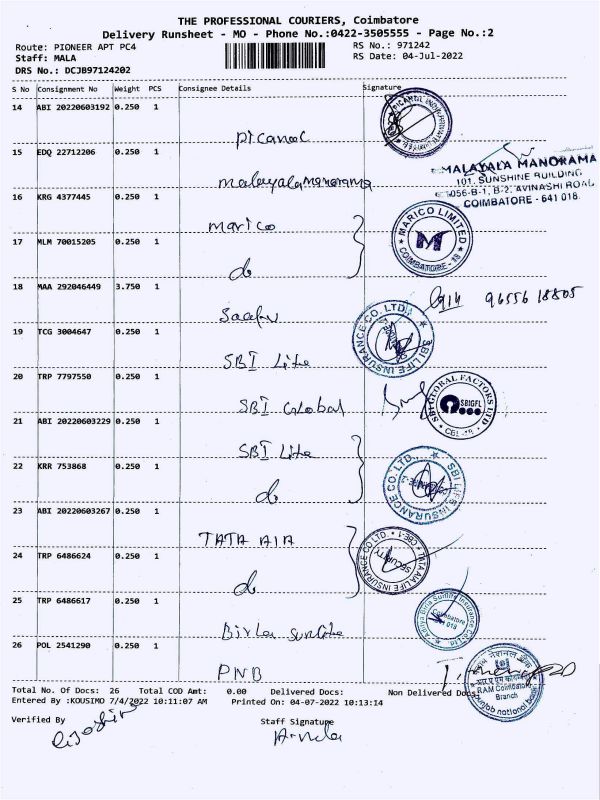 THE PROFESSIONAL COURIERS, Coimbatore
Delivery Runsheet - MO - Phone No.:0422-3505555 - Page No.:2
Route: PIONEER APT PC4 RS No.: 971242
Staff: MALA RS Date: 04-Jul-2022
DRS No.: DCJB97124202
S No Consignment No Weight PCS Consignee Details Signature
14 ABI 20220603192 0.250 1
Picanol
15 EDQ 22712206 0.250 1
malayala manorama
MALAYALA MANORAMA
101, SUNSHINE BUILDING
1056-B-1, B-2, AVINASHI ROAD
COIMBATORE - 641 018.
16 KRG 4377445 0.250 1
marico
MARICO LIMITED
COIMBATORE - 18
17 MLM 70015205 0.250 1
do
18 MAA 292046449 3.750 1
96556 18805
19 TCG 3004647 0.250 1
SBI Life
SBI LIFE INSURANCE CO. LTD.
20 TRP 7797550 0.250 1
SBI Global
SBI GLOBAL FACTORS LTD
SBIGFL
21 ABI 20220603229 0.250 1
SBI Life
22 KRR 753868 0.250 1
do
SBI LIFE INSURANCE CO. LTD.
23 ABI 20220603267 0.250 1
TATA AIA
24 TRP 6486624 0.250 1
do
TATA AIA LIFE INSURANCE CO. LTD. CBE-1
SECURITY
25 TRP 6486617 0.250 1
Birla Sunlife
Aditya Birla Sunlife Insurance Co Ltd
Coimbatore
641 018
26 POL 2541290 0.250 1
PNB
RAM Coimbatore
Branch
punjab national bank
Total No. Of Docs: 26 Total COD Amt: 0.00 Delivered Docs: Non Delivered Docs:
Entered By :KOUSIMO 7/4/2022 10:11:07 AM Printed On: 04-07-2022 10:13:14
Verified By Staff Signature